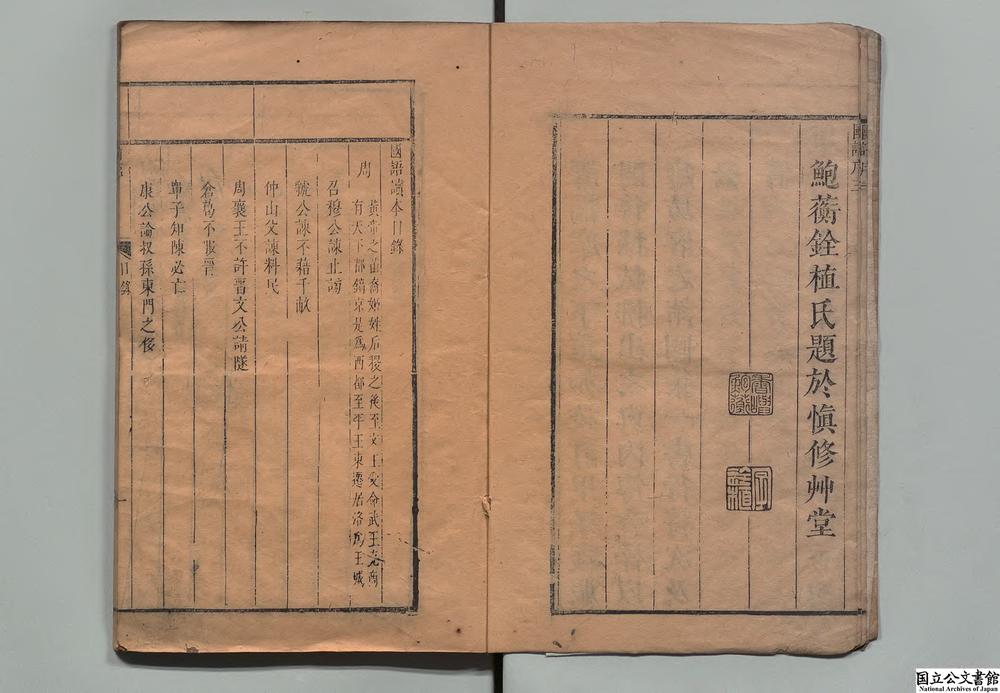 鮑蘅銓植氏題於愼修艸堂
國語讀本目錄
周
黃帝之苗裔姬姓后稷之後至文王受命武王克商
有天下都鎬京是爲西都至平王東遷始洛爲王城
召穆公諫止謗
虢公諫不藉千畝
仲山父諫料民
周襄王不許晉文公請隧
倉葛不服晉
單子知陳必亡
康公論叔孫東門之後
目錄
国立公文書館
National Archives of Japan